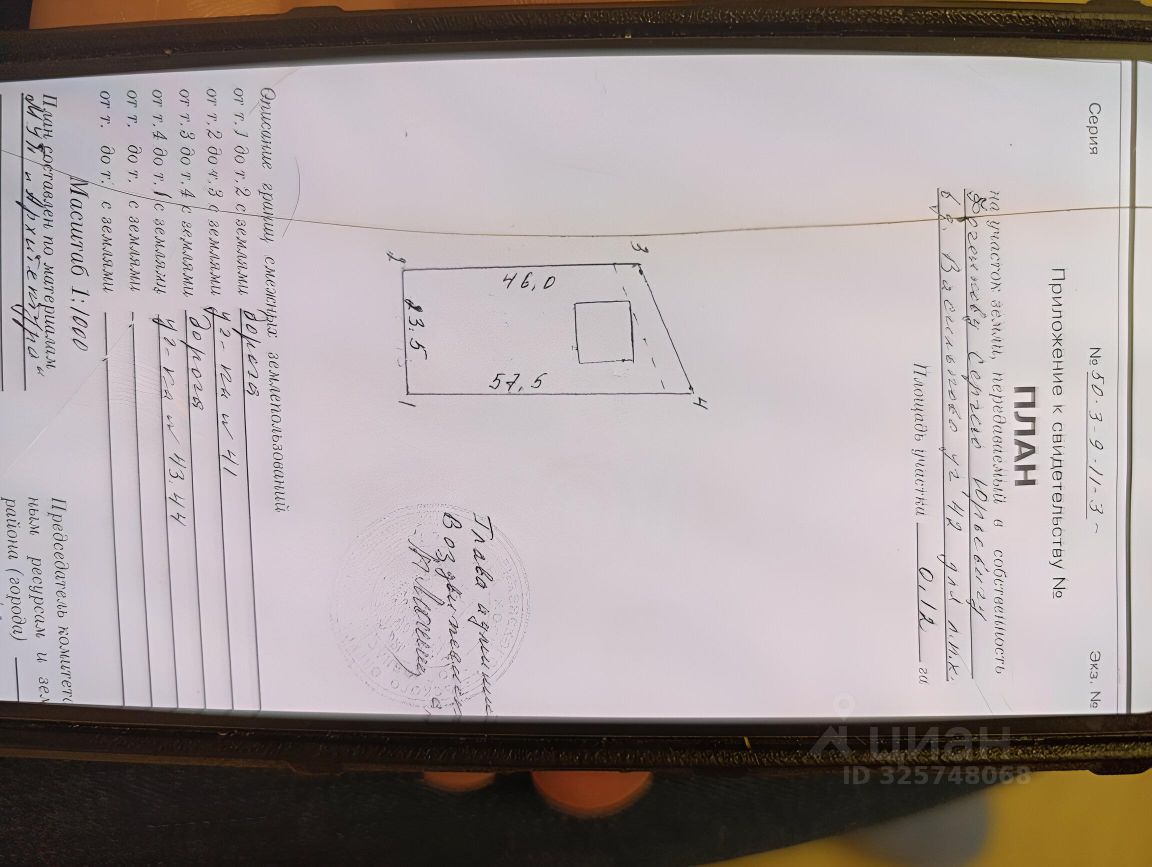 Серия
№ 50-3-9-11-3-
Экз. №
Приложение к свидетельству №
ПЛАН
на участок земли, передаваемый в собственность
Сергею Юрьевичу
в д. Васильково уч. 42 для л.п.х.
Площадь участка 0.12 га
3
4
46,0
57,5
23.5
2
1
Глава админис
Описание границ смежных землепользований
от т.1 до т.2 с землями дорога
от т.2 до т.3 с землями уч-ка № 41
от т.3 до т.4 с землями дорога
от т.4 до т.1 с землями уч-ка № 43,44
от т. до т. с землями
от т. до т. с землями
Масштаб 1:1000
План составлен по материалам
МУП "Архитектура"
Председатель комитета
ным ресурсам и зем
района (города)
циан
ID 325748068